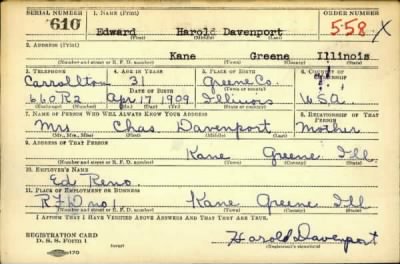 SERIAL NUMBER 1. NAME (Print) ORDER NUMBER
610 Edward Harold Davenport 558 X
(First) (Middle) (Last)
2. ADDRESS (Print)
Kane Greene Illinois
(Number and street or R. F. D. number) (Town) (County) (State)
3. TELEPHONE 4. AGE IN YEARS 5. PLACE OF BIRTH 6. COUNTRY OF
Carrollton 31 Greene Co.
DATE OF BIRTH (Town or county)
660R2 Apr 17 1909 Illinois USA
(Mo.) (Day) (Yr.) (State or country)
7. NAME OF PERSON WHO WILL ALWAYS KNOW YOUR ADDRESS 8. RELATIONSHIP OF THAT PERSON
Mrs Chas Davenport Mother
(Mr., Mrs., Miss) (First) (Middle) (Last)
9. ADDRESS OF THAT PERSON
Kane Greene Ill
(Number and street or R. F. D. number) (Town) (County) (State)
10. EMPLOYER'S NAME
Ed Reno
11. PLACE OF EMPLOYMENT OR BUSINESS
RFD no 1 Kane Greene Ill
(Number and street or R. F. D. number) (Town) (County) (State)
I AFFIRM THAT I HAVE VERIFIED ABOVE ANSWERS AND THAT THEY ARE TRUE.
REGISTRATION CARD
D. S. S. Form 1 (over) Harold Davenport